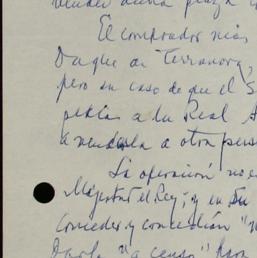 vender dicha plaza
El comprador más
Duque de Terranova,
pero en caso de que el S
pedía a la Real A
a venderla a otra pers
La operación no e
Majestad el Rey; y en su
conceder y concesión "
Darlo "a censo" para